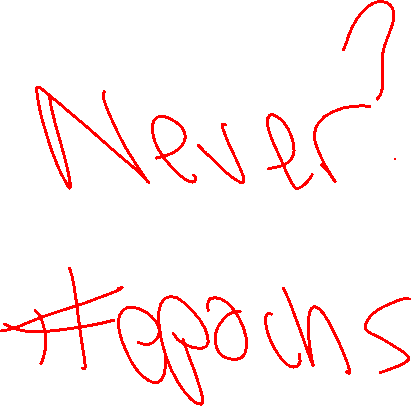 Never?
#epachs